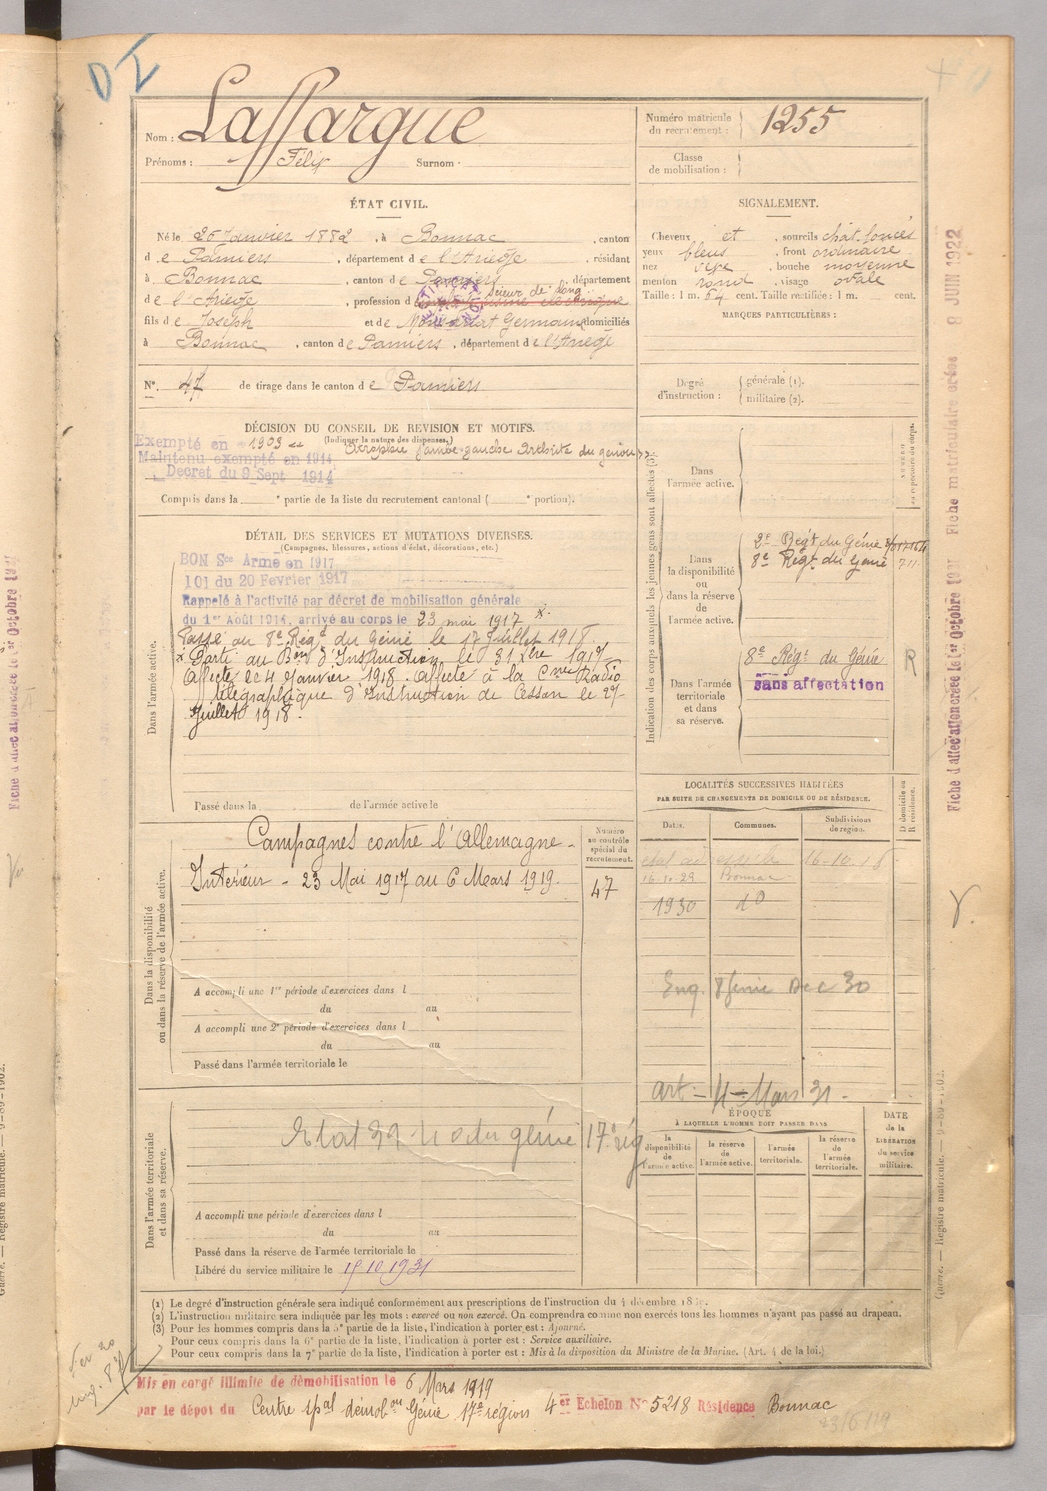 D I
Nom : Laffargue
Prénoms : Félix Surnom
Numéro matricule du recrutement : 1255
Classe de mobilisation :
ÉTAT CIVIL.
Né le 26 Janvier 1882, à Bonnac, canton
de Pamiers, département de l'Ariège, résidant
à Bonnac, canton de Pamiers, département
de l'Ariège, profession d Scieur de long
fils de Joseph et de Germaine domiciliés
à Bonnac, canton de Pamiers, département de l'Ariège
N° 47 de tirage dans le canton de Pamiers
SIGNALEMENT.
Cheveux et, sourcils chât. foncés
yeux bleus, front ordinaire
nez, bouche moyenne
menton rond, visage ovale
Taille : 1 m. 64 cent. Taille rectifiée : 1 m. cent.
MARQUES PARTICULIÈRES :
Degré d'instruction : générale (1). militaire (2).
DÉCISION DU CONSEIL DE RÉVISION ET MOTIFS.
(Indiquer la nature des dispenses.)
Exempté en 1903 Atrophie jambe gauche Arthrite du genou
Maintenu exempté en 1914
Décret du 9 Sept 1914
Compris dans la e partie de la liste du recrutement cantonal ( e portion).
DÉTAIL DES SERVICES ET MUTATIONS DIVERSES.
(Campagnes, blessures, actions d'éclat, décorations, etc.)
Dans l'armée active.
BON Sce Armé en 1917
101 du 20 Février 1917
Rappelé à l'activité par décret de mobilisation générale
du 1er Août 1914, arrivé au corps le 23 mai 1917 x.
Passé au 8e Régt du Génie le 17 Juillet 1918.
x Parti au Bon d'Instruction le 31 Xbre 1917
Affecté le 4 Janvier 1918. Affecté à la Cie Radio
télégraphique d'Instruction de Cessan le 27
Juillet 1918.
Passé dans la de l'armée active le
Indication des corps auxquels les jeunes gens sont affectés (3).
Dans l'armée active.
Dans la disponibilité ou dans la réserve de l'armée active.
2e Régt du Génie
8e Régt du Génie
Dans l'armée territoriale et dans sa réserve.
8e Régt du Génie R
Sans affectation
Fiche matriculaire créée 8 JUIN 1922
LOCALITÉS SUCCESSIVES HABITÉES
PAR SUITE DE CHANGEMENTS DE DOMICILE OU DE RÉSIDENCE.
Dates. Communes. Subdivisions de région. D domicile ou R résidence.
16-10-18
16.10.29 Bonnac
1930 d°
Génie Dec 30
art - 4 - Mars 31 -
Dans la disponibilité ou dans la réserve de l'armée active.
Campagnes contre l'Allemagne -
Intérieur - 23 Mai 1917 au 6 Mars 1919.
Numéro au contrôle spécial du recrutement.
47
A accompli une 1re période d'exercices dans l
du au
A accompli une 2e période d'exercices dans l
du au
Passé dans l'armée territoriale le
Dans l'armée territoriale et dans sa réserve.
du génie 17e rég
A accompli une période d'exercices dans l
du au
Passé dans la réserve de l'armée territoriale le
Libéré du service militaire le 15 10 1931
ÉPOQUE
À LAQUELLE L'HOMME DOIT PASSER DANS
la disponibilité de l'armée active.
la réserve de l'armée active.
l'armée territoriale.
la réserve de l'armée territoriale.
DATE de la LIBÉRATION du service militaire.
(1) Le degré d'instruction générale sera indiqué conformément aux prescriptions de l'instruction du 4 décembre
(2) L'instruction militaire sera indiquée par les mots : exercé ou non exercé. On comprendra comme non exercés tous les hommes n'ayant pas passé au drapeau.
(3) Pour les hommes compris dans la 5e partie de la liste, l'indication à porter est : Ajourné.
Pour ceux compris dans la 6e partie de la liste, l'indication à porter est : Service auxiliaire.
Pour ceux compris dans la 7e partie de la liste, l'indication à porter est : Mis à la disposition du Ministre de la Marine. (Art. 4 de la loi.)
Mis en congé illimité de démobilisation le 6 Mars 1919
par le dépot du Centre spal démobon Génie 17e région 4er Echelon N° 5218 Résidence Bonnac
23/6/29
Guerre. — Registre matricule. — 9-89-1902.